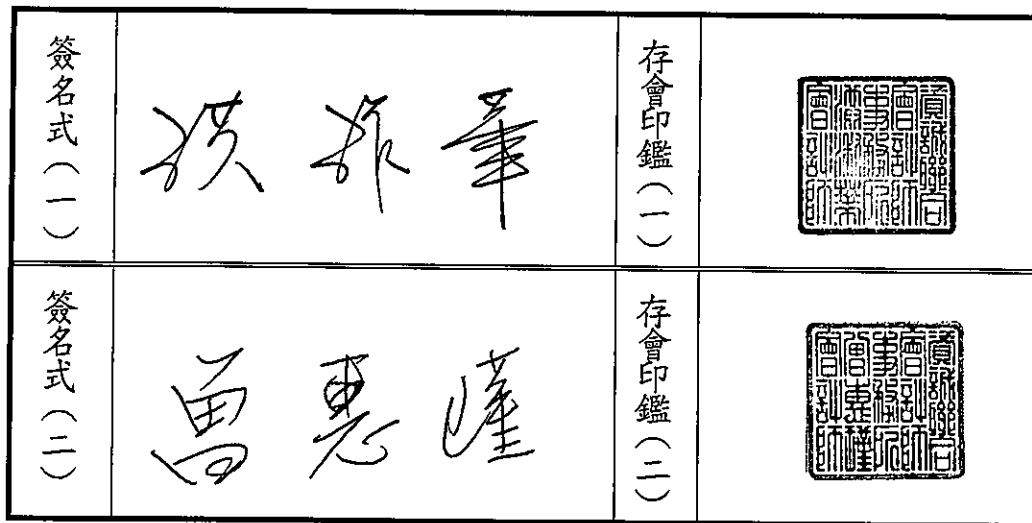 簽名式（一）
存會印鑑（一）
資誠聯合
會計師
事務所
會計師
簽名式（二）
曾惠瑾
存會印鑑（二）
資誠聯合
會計師
事務所
曾惠瑾
會計師